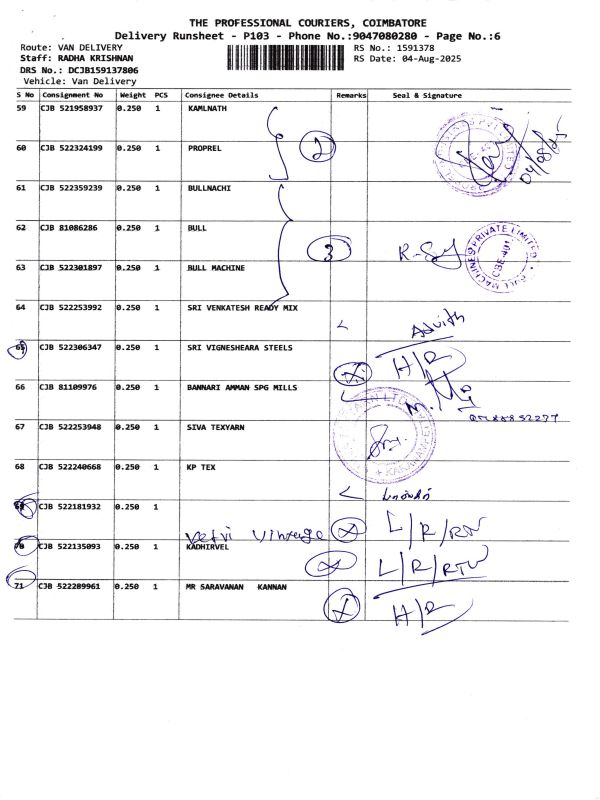 THE PROFESSIONAL COURIERS, COIMBATORE
Delivery Runsheet - P103 - Phone No.:9047080280 - Page No.:6
Route: VAN DELIVERY
RS No.: 1591378
Staff: RADHA KRISHNAN
RS Date: 04-Aug-2025
DRS No.: DCJB159137806
Vehicle: Van Delivery
S No Consignment No Weight PCS Consignee Details Remarks Seal & Signature
59 CJB 521958937 0.250 1 KAMLNATH
60 CJB 522324199 0.250 1 PROPREL
2
04/08/25
61 CJB 522359239 0.250 1 BULLNACHI
62 CJB 81086286 0.250 1 BULL
3
BULL MACHINES PRIVATE LIMITED
CBE-401
63 CJB 522301897 0.250 1 BULL MACHINE
64 CJB 522253992 1 0.250 1 SRI VENKATESH READY MIX
65 CJB 522306347 0.250 1 SRI VIGNESHEARA STEELS
H/R
66 CJB 81109976 0.250 1 BANNARI AMMAN SPG MILLS
67 CJB 522253948 0.250 1 SIVA TEXYARN
68 CJB 522240668 0.250 1 KP TEX
69 CJB 522181932 0.250 1
L/R/RTN
70 CJB 522135093 0.250 1 KADHIRVEL
L/R/RTN
71 CJB 522289961 0.250 1 MR SARAVANAN KANNAN
H/R